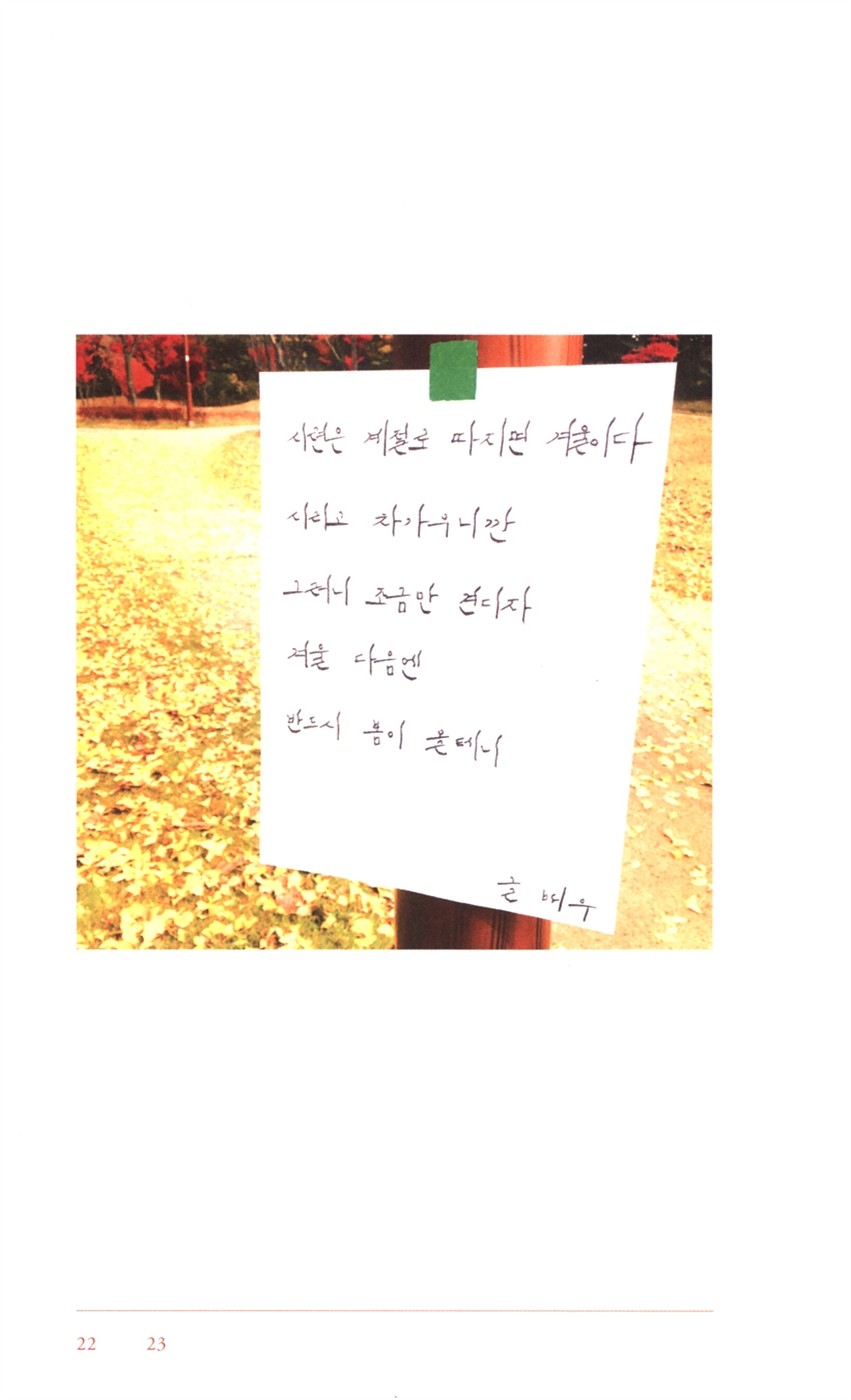 시련은 계절로 따지면 겨울이다
시리고 차가우니깐
그러니 조금만 견디자
겨울 다음엔
반드시 봄이 올테니
글 배우
22 23